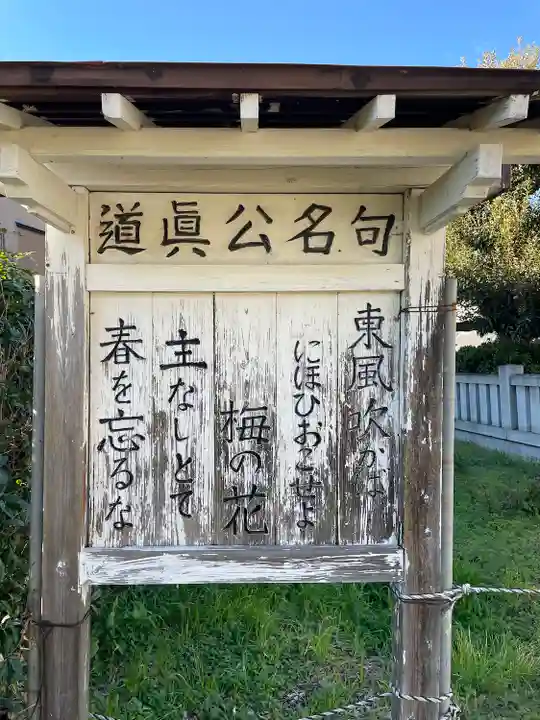 道眞公名句
東風吹かば
にほひおこせよ
梅の花
主なしとて
春を忘るな